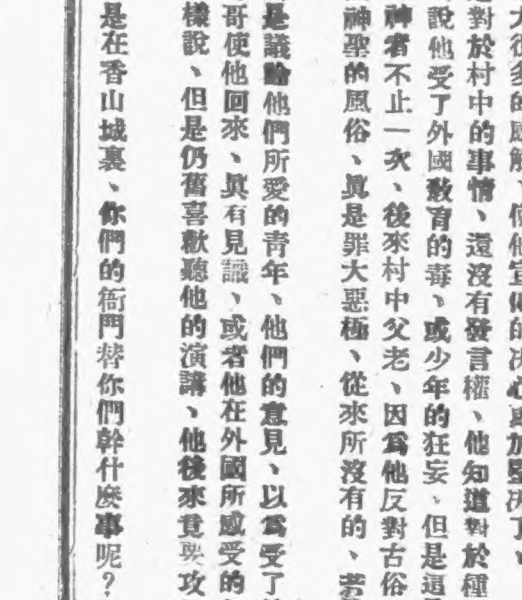 對於村中的事情、還沒有發言權、他知道對於種
說他受了外國教育的毒、或少年的狂妄、但是這
神者不止一次、後來村中父老、因爲他反對古俗
神聖的風俗、眞是罪大惡極、從來所沒有的、若
是議論他們所愛的靑年、他們的意見、以爲受了
哥使他回來、眞有見識、或者他在外國所感受的
樣說、但是仍舊喜歡聽他的演講、他後來竟要攻
是在香山城裏、你們的衙門替你們幹什麽事呢？